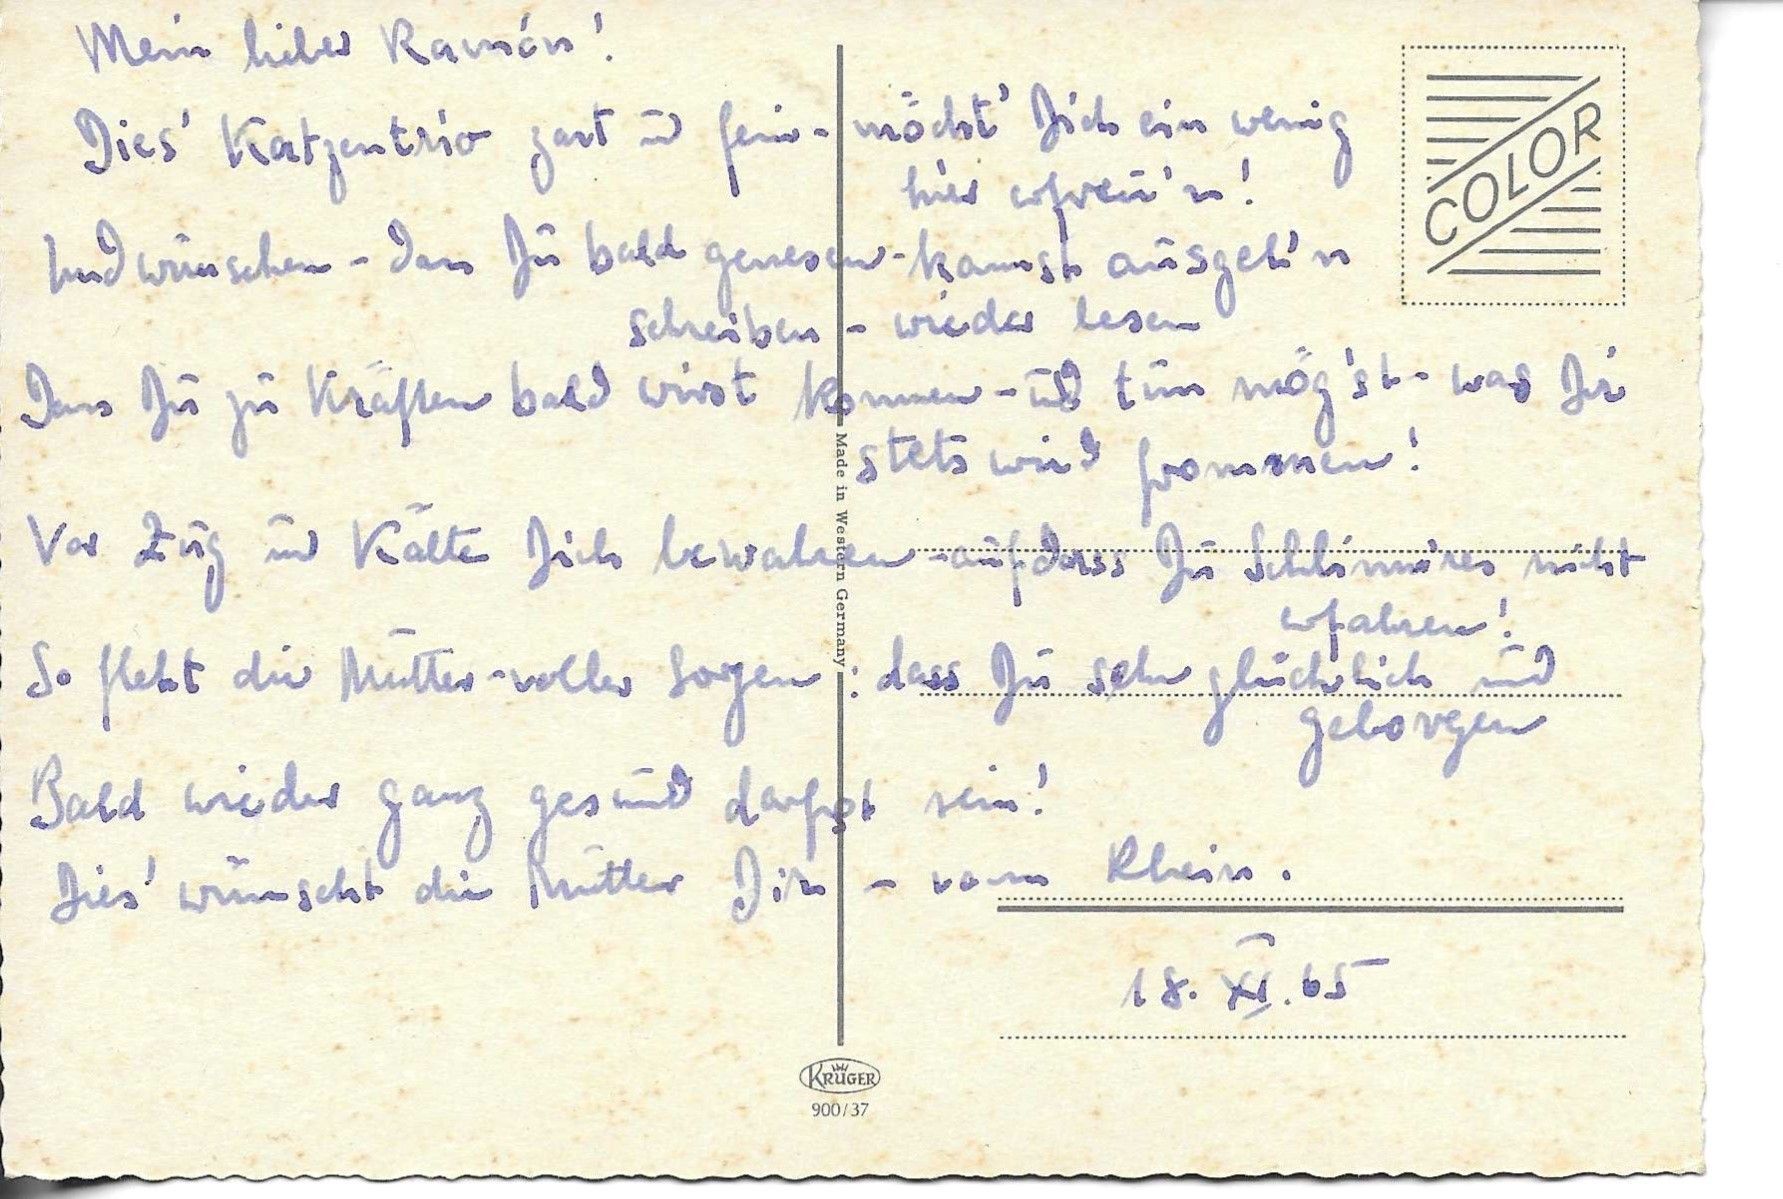 Mein lieber Ramón!
Dies' Katzentrio zart ūd fein - möcht' Dich ein wenig
hier erfreu'n!
Und wünschen - dass Dū bald genesen - kannst aūsgeh'n
schreiben - wieder lesen
Dass Dū zū Kräften bald wirst kommen - ūd tūn mög'st - was Dir
stets wird frommen!
Vor Zūg ūd Kälte Dich bewahren - aūfdass Dū Schlimm'res nicht
erfahren!
So fleht die Mūtter - voller Sorgen : dass Dū sehr glücklich ūnd
geborgen
Bald wieder ganz gesūnd darfst sein!
Dies' wünscht die Mūtter Dir - vom Rhein.
18. XI. 65
COLOR
Made in Western Germany
KRÜGER
900/37